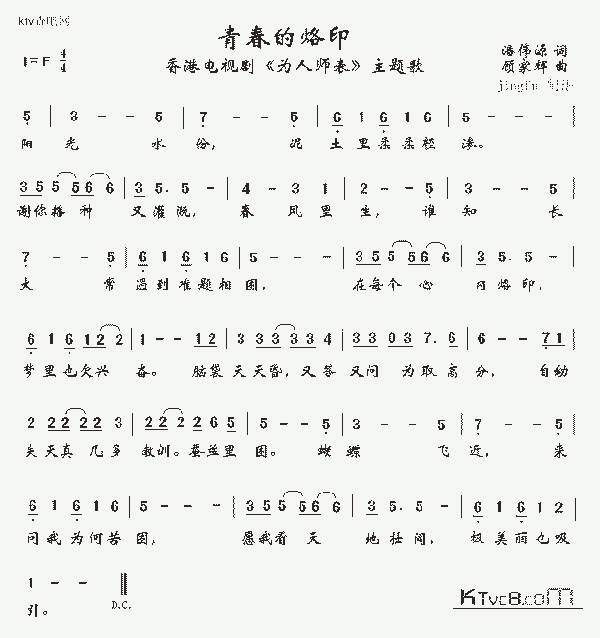 青春的烙印
香港电视剧《为人师表》主题歌
1=F 4/4
潘伟源 词
顾家辉 曲
5 | 3 - - 5 | 7 - - 5 | 6 1 6 1 6 | 5 - -
阳 光 水 份， 泥 土 里 柔 柔 轻 渗。
3 5 5 5 5 6 6 | 3 5. 5 - | 4 - 3 1 | 2 - - 5 | 3 - - 5
谢你播 种 又 灌 溉， 春 风 里 生， 谁 知 长
7 - - 5 | 6 1 6 1 6 | 5 - - | 3 5 5 5 6 6 | 3 5. 5 -
大 常 遇到难题相困， 在每个 心 内烙印，
6 1 6 1 2 2 | 1 - - 1 2 | 3 3 3 3 3 3 4 | 3 3 0 3 7. 6 | 6 - - 7 1
梦里也欠兴 奋。 脑袋天天昏，又答又问 为取高分， 自幼
2 2 2 2 2 3 | 2 2 2 2 6 5 | 5 - - 5 | 3 - - 5 | 7 - - 5
失天真 几多 教训。蚕丝里 困。 蝴 蝶 飞 近， 来
6 1 6 1 6 | 5 - - | 3 5 5 5 6 6 | 3 5. 5 - | 6 1 6 1 2
问 我 为何苦 困， 愿我看 天 地壮阔， 极美丽也吸
1 - -
引。 D.C.
KTvc8.com